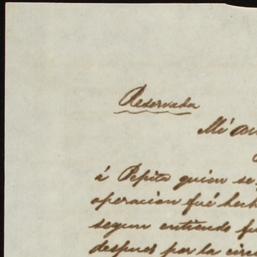 Reservada
Mi
á Pepito quien se
operacion fué hech
segun entiendo fu
despues por la circ